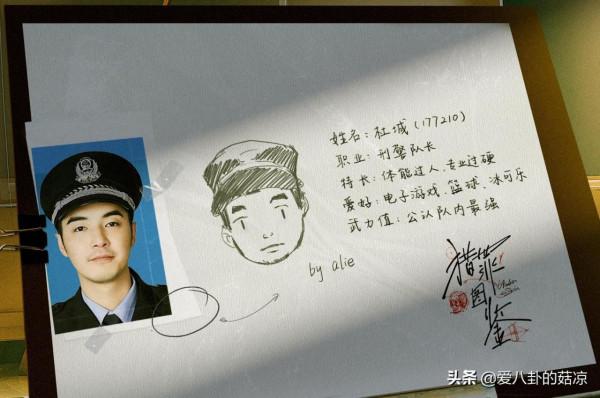 姓名：杜城（177210）
职业：刑警队长
特长：体能过人、专业过硬
爱好：电子游戏、篮球、冰可乐
武力值：公认队内最强
by alie
猎罪图鉴
头条 @爱八卦的菇凉